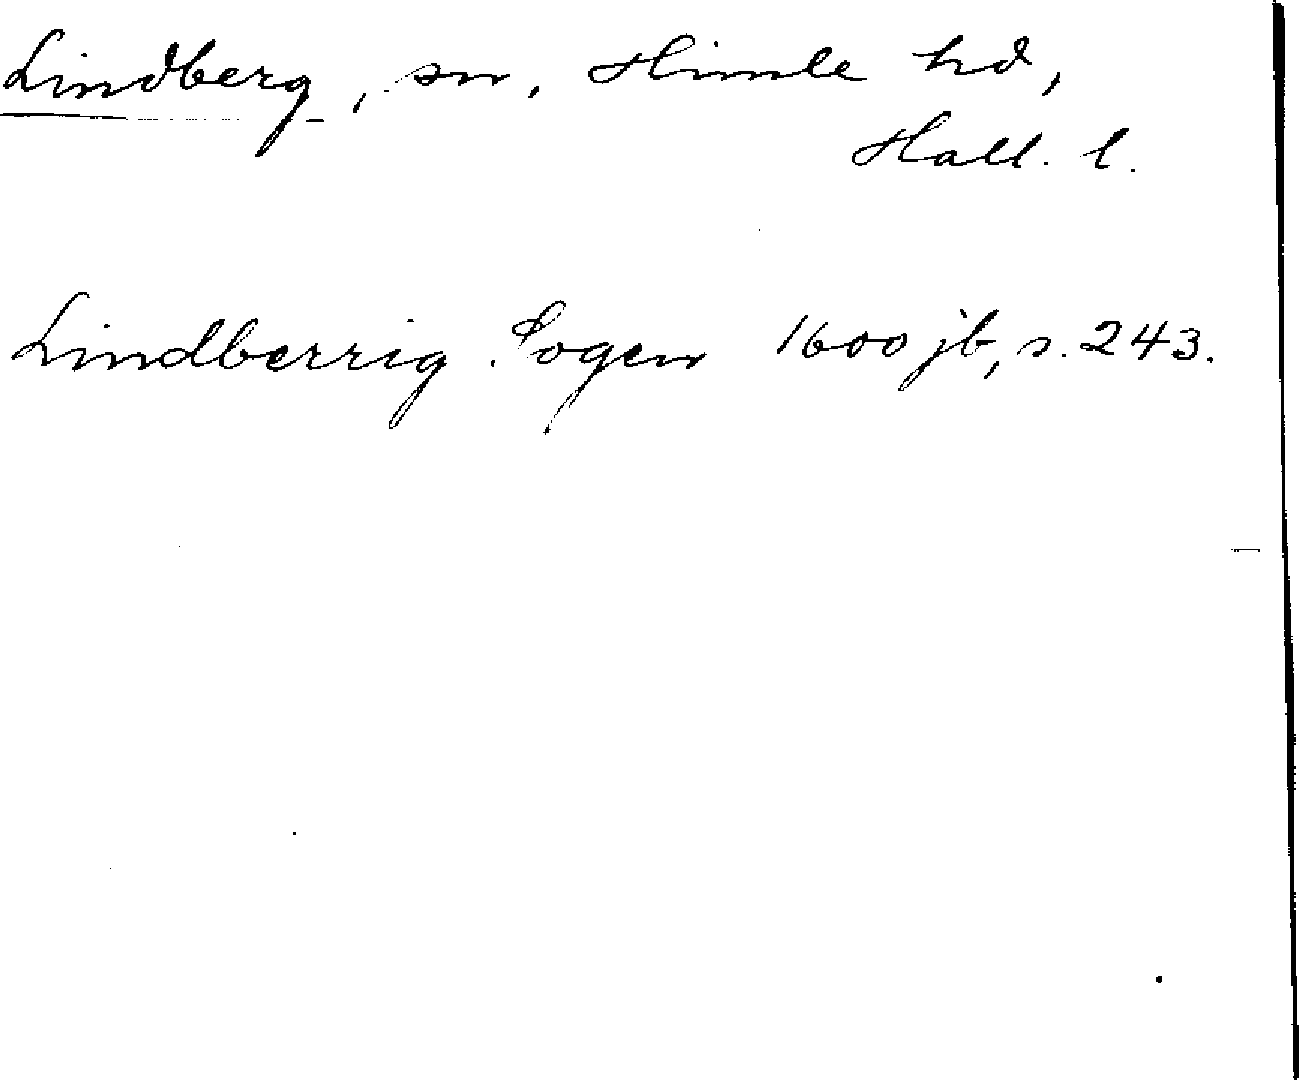 Lindberg, sn, Himle hd,
Hall. l.
Lindberrig Sogen 1600 jb, s. 243.